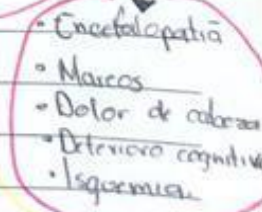 • Encefalopatía
• Mareos
• Dolor de cabeza
• Deterioro cognitivo
• Isquemia